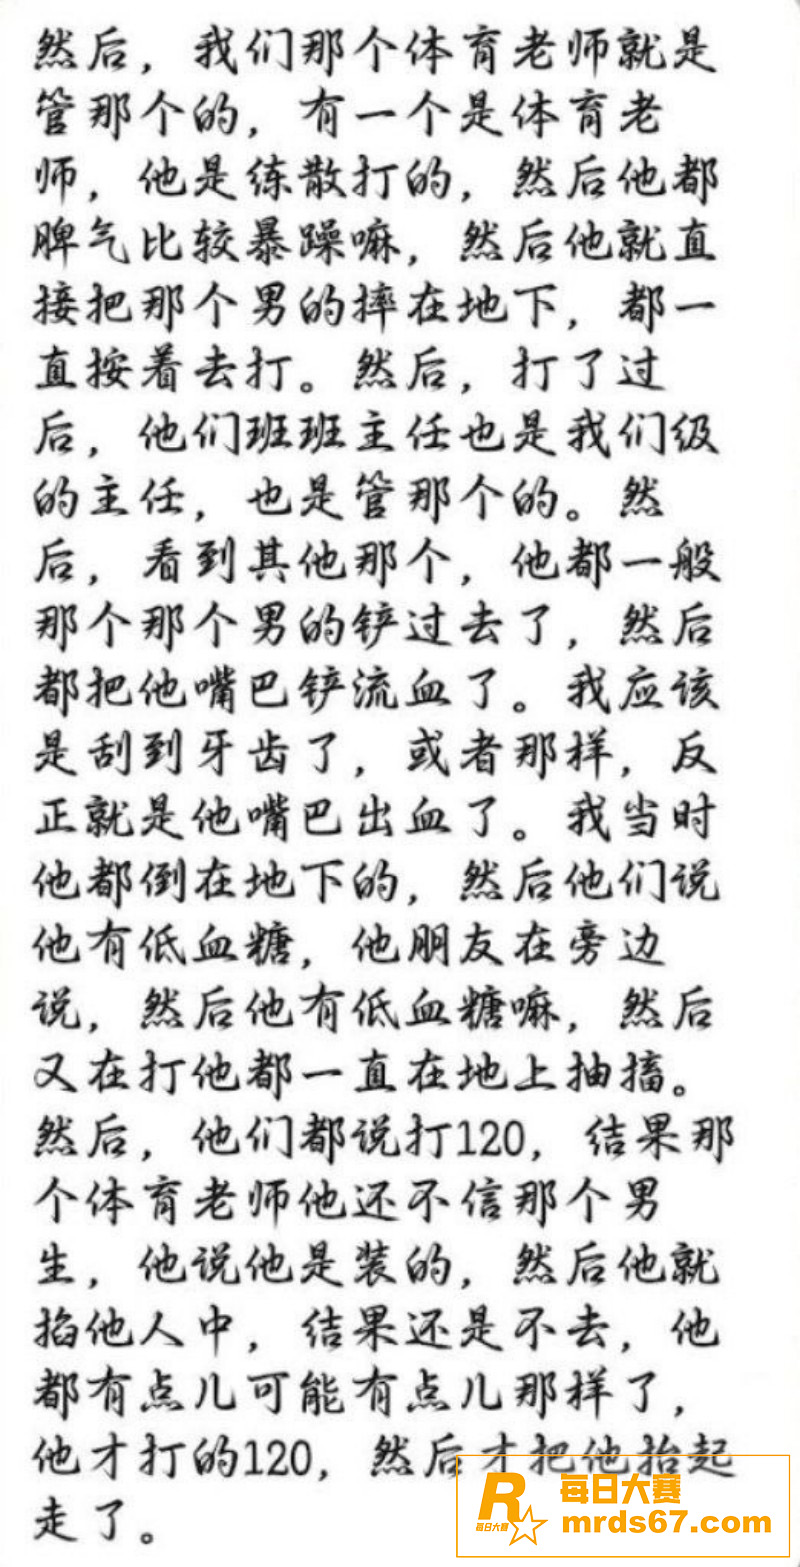 然后，我们那个体育老师就是
管那个的，有一个是体育老
师，他是练散打的，然后他都
脾气比较暴躁嘛，然后他就直
接把那个男的摔在地下，都一
直按着去打。然后，打了过
后，他们班班主任也是我们级
的主任，也是管那个的。然
后，看到其他那个，他都一般
那个那个男的铲过去了，然后
都把他嘴巴铲流血了。我应该
是刮到牙齿了，或者那样，反
正就是他嘴巴出血了。我当时
他都倒在地下的，然后他们说
他有低血糖，他朋友在旁边
说，然后他有低血糖嘛，然后
又在打他都一直在地上抽搐。
然后，他们都说打120，结果那
个体育老师他还不信那个男
生，他说他是装的，然后他就
掐他人中，结果还是不去，他
都有点儿可能有点儿那样了，
他才打的120，然后才把他抬起
走了。
R
每日大赛
每日大赛
mrds67.com